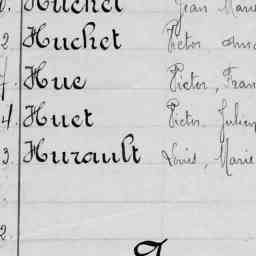 Huchet Jean Marie
2 Huchet Victor
Hue Victor, Fran
4. Huet Victor Julien
3 Hurault Louis, Marie
2
J